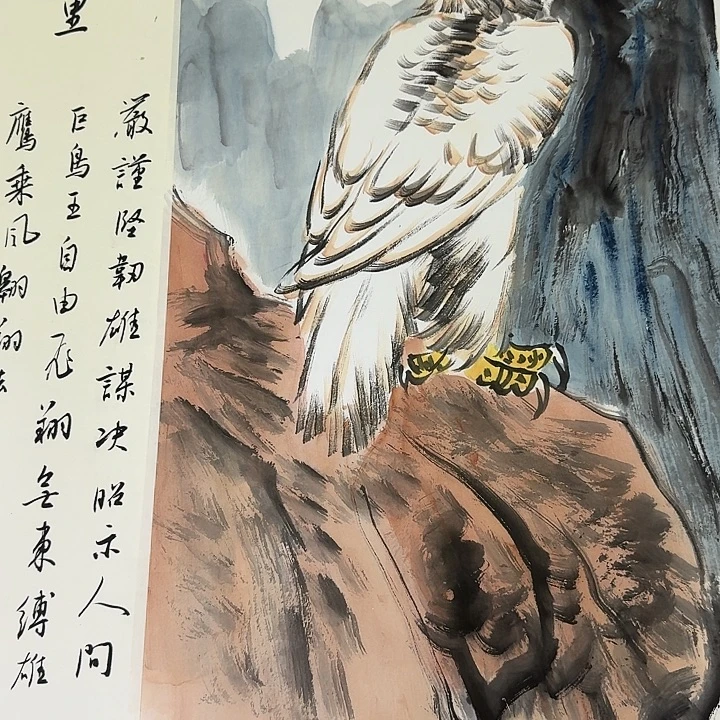 里
嚴謹堅韌雄謀决昭示人間
巨鳥王自由飛翔無束縛雄
鷹乘风翱翔